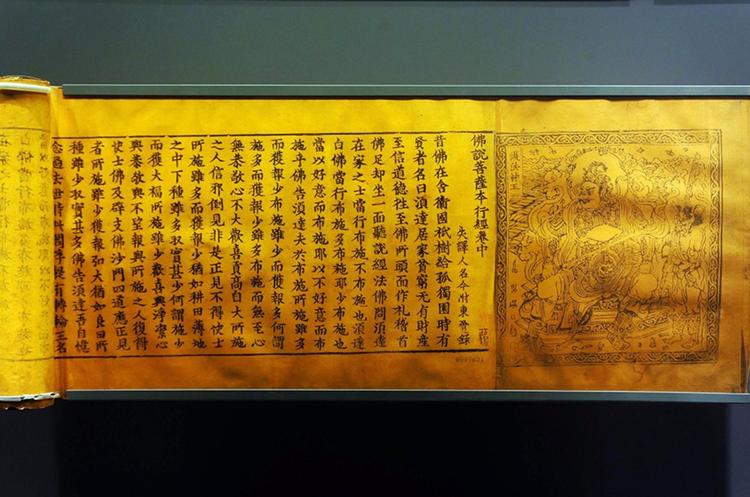 護法神王
佛說菩薩本行經卷中
失譯人名今附東晉錄
昔佛在舍衛國祇樹給孤獨園時有
賢者名曰須達居家貧窮無有財產
至信道德往至佛所頭面作禮稽首
佛足却坐一面聽說經法佛問須達
在家之士當行布施不布施也須達
白佛當行布施多布施耶少布施也
當以好意而布施耶以不好意而布
施乎佛告須達夫於布施所施雖多
而獲報少布施雖少而獲報多何謂
施多而獲報少雖多布施而無至心
無恭敬心不大歡喜貢高自大所施
之人信邪倒見非是正見不得快士
所施雖多而獲報少猶如耕田薄地
之中下種雖多收實甚少何謂施少
而獲大福所施雖少歡喜與淨潔心
與恭敬與不望報與所施之人復得
快士佛及辟支佛沙門四道應正見
者所施雖少獲報弘大猶如良田所
種雖少收實甚多佛告須達吾自憶
念過去世時此閻浮提有轉輪王名